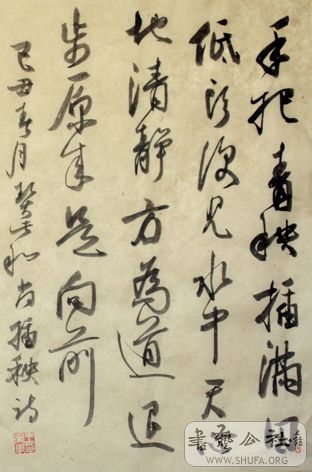 手把青秧插滿田
低头便见水中天心
地清靜方為道退
步原来是向前
己丑春月契此和尚插秧诗
書藝公社
WWW.SHUFA.ORG